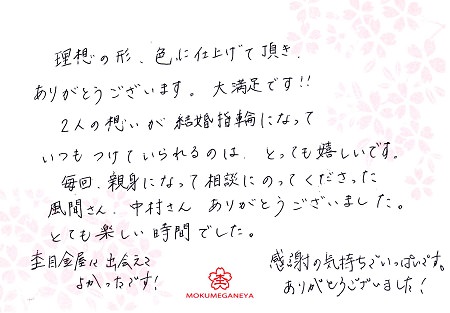 理想の形、色に仕上げて頂き、
ありがとうございます。大満足です!!
2人の想いが結婚指輪になって
いつもつけていられるのは、とっても嬉しいです。
毎回、親身になって相談にのってくださった
風間さん、中村さん ありがとうございました。
とても楽しい時間でした。
杢目金屋に出会えて
よかったです!
感謝の気持ちでいっぱいです。
ありがとうございました!
杢
MOKUMEGANEYA